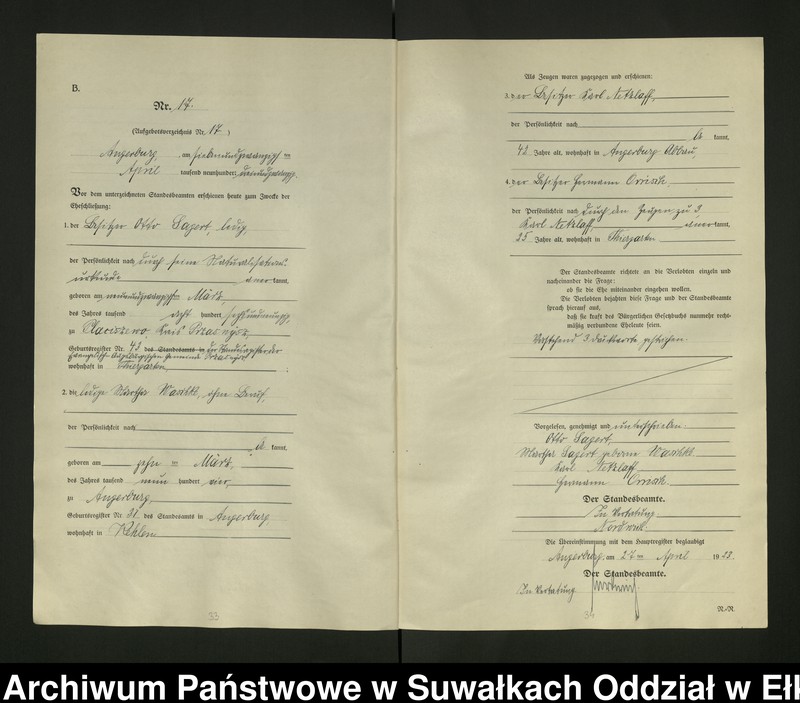 B.
Nr. 17.
(Aufgebotsverzeichnis Nr. 17)
Angerburg, am siebenundzwanzigsten
April tausend neunhundert
Vor dem unterzeichneten Standesbeamten erschienen heute zum Zwecke der
Eheschließung:
1. der Besitzer Otto Sagert, ledig,
der Persönlichkeit nach durch seine Naturalisations-
urkunde kannt,
geboren am neunundzwanzigsten März,
des Jahres tausend acht hundert
zu Kreis
Geburtsregister Nr. 43 des Standesamts in
wohnhaft in Thiergarten,
2. die ledige Martha Waschk, ohne Beruf,
der Persönlichkeit nach
kannt,
geboren am zehn ten März,
des Jahres tausend neun hundert vier,
zu Angerburg,
Geburtsregister Nr. 31 des Standesamts in Angerburg,
wohnhaft in Kehlen
33
Als Zeugen waren zugezogen und erschienen:
3. der Besitzer Karl Netzlaff,
der Persönlichkeit nach
kannt,
42 Jahre alt, wohnhaft in Angerburg Abbau,
4. der Besitzer Hermann
der Persönlichkeit nach durch den Zeugen zu 3,
Karl Netzlaff, kannt,
25 Jahre alt, wohnhaft in Thiergarten
Der Standesbeamte richtete an die Verlobten einzeln und
nacheinander die Frage:
ob sie die Ehe miteinander eingehen wollen.
Die Verlobten bejahten diese Frage und der Standesbeamte
sprach hierauf aus,
daß sie kraft des Bürgerlichen Gesetzbuchs nunmehr recht-
mäßig verbundene Eheleute seien.
Vorstehend 3 Druckworte gestrichen.
Vorgelesen, genehmigt und unterschrieben
Otto Sagert,
Martha Sagert geborene Waschk
Karl Netzlaff
Hermann
Der Standesbeamte.
In Vertretung.
Die Übereinstimmung mit dem Hauptregister beglaubigt
Angerburg, am 27 ten April 1928.
Der Standesbeamte.
In Vertretung
34
R.-R.
Archiwum Państwowe w Suwałkach Oddział w Ełk